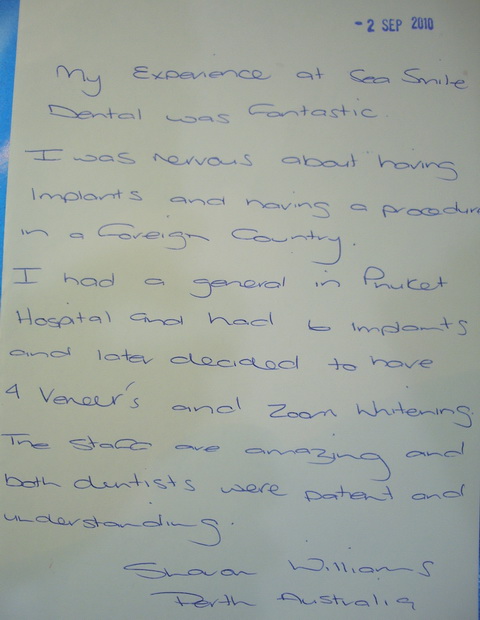 - 2 SEP 2010
My Experience at Sea Smile
Dental was fantastic.
I was nervous about having
Implants and having a procedure
in a foreign Country.
I had a general in Phuket
Hospital and had 6 implants
and later decided to have
4 Veneer's and Zoom Whitening.
The staff are amazing and
both dentists were patent and
understanding.
Sharon Williams
Perth Australia